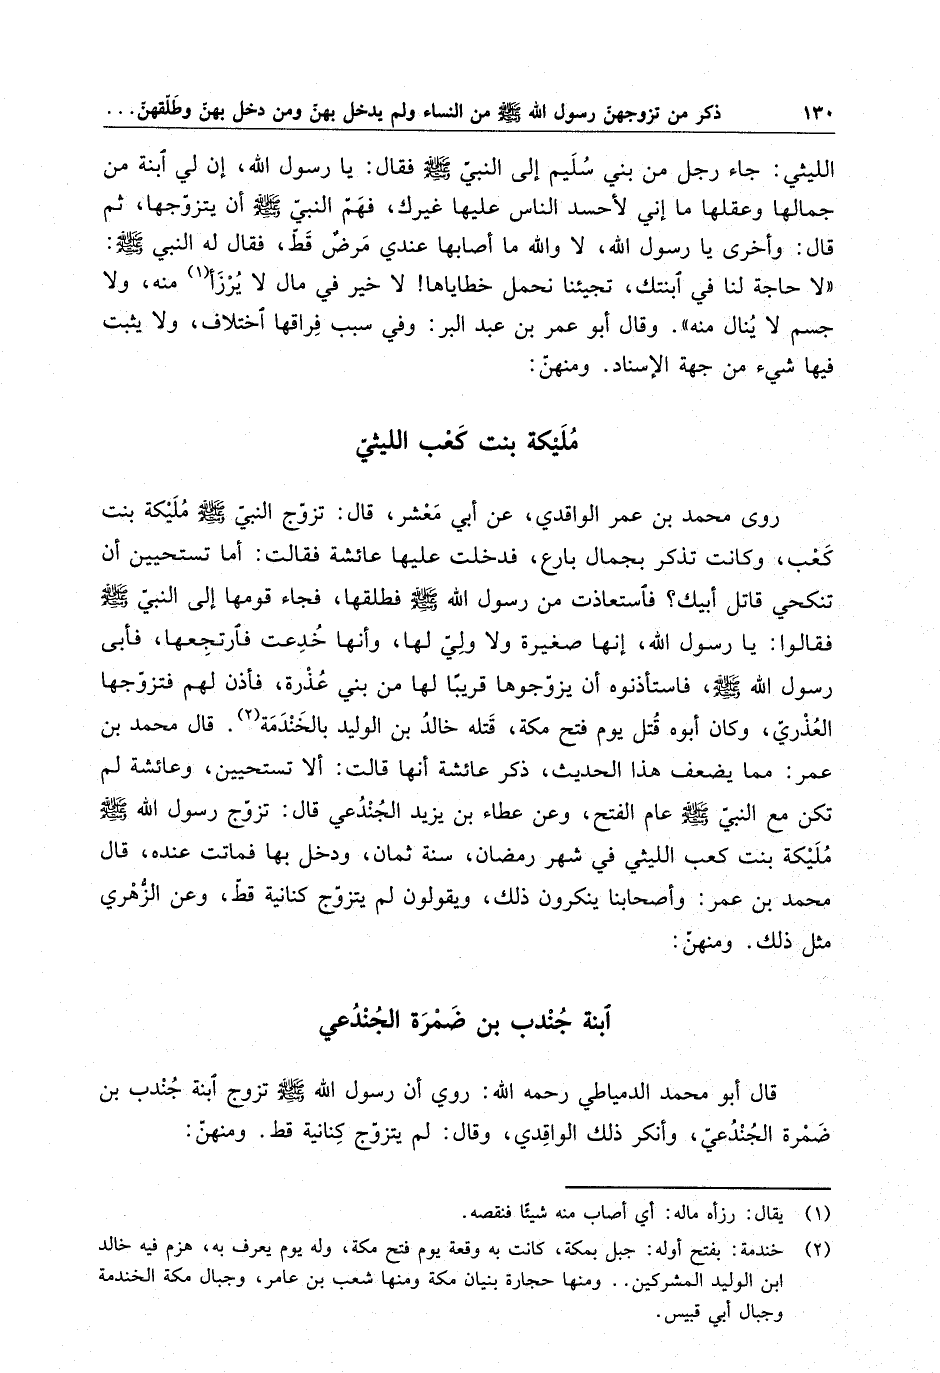 ١٣٠ ذكر من تزوجهنّ رسول الله ﷺ من النساء ولم يدخل بهنّ ومن دخل بهنّ وطَلّقهنّ...
الليثي: جاء رجل من بني سُلَيم إلى النبيّ ﷺ فقال: يا رسول الله، إن لي ٱبنة من
جمالها وعقلها ما إني لأحسد الناس عليها غيرك، فهَمّ النبيّ ﷺ أن يتزوّجها، ثم
قال: وأخرى يا رسول الله، لا والله ما أصابها عندي مَرضٌ قَطّ، فقال له النبي ﷺ:
«لا حاجة لنا في ٱبنتك، تجيئنا نحمل خطاياها! لا خير في مال لا يُرْزَأ(١) منه، ولا
جسم لا يُنال منه». وقال أبو عمر بن عبد البر: وفي سبب فِراقها ٱختلاف، ولا يثبت
فيها شيء من جهة الإسناد. ومنهنّ:
مُلَيْكة بنت كَعْب الليثيّ
روى محمد بن عمر الواقدي، عن أبي مَعْشر، قال: تزوّج النبيّ ﷺ مُلَيْكة بنت
كَعْب، وكانت تذكر بجمال بارع، فدخلت عليها عائشة فقالت: أما تستحيين أن
تنكحي قاتل أبيك؟ فٱستعاذت من رسول الله ﷺ فطلقها، فجاء قومها إلى النبيّ ﷺ
فقالوا: يا رسول الله، إنها صغيرة ولا ولِيّ لها، وأنها خُدِعت فٱرتجِعها، فأبى
رسول الله ﷺ، فاستأذنوه أن يزوّجوها قريبًا لها من بني عُذْرة، فأذن لهم فتزوّجها
العُذْريّ، وكان أبوه قُتل يوم فتح مكة، قَتله خالدُ بن الوليد بالخَنْدَمَة(٢). قال محمد بن
عمر: مما يضعف هذا الحديث، ذكر عائشة أنها قالت: ألا تستحيين، وعائشة لم
تكن مع النبيّ ﷺ عام الفتح، وعن عطاء بن يزيد الجُنْدُعي قال: تزوّج رسول الله ﷺ
مُلَيْكة بنت كعب الليثي في شهر رمضان، سنة ثمان، ودخل بها فماتت عنده، قال
محمد بن عمر: وأصحابنا ينكرون ذلك، ويقولون لم يتزوّج كنانية قطّ، وعن الزُّهْري
مثل ذلك. ومنهنّ:
ٱبنة جُنْدب بن ضَمْرَة الجُنْدُعي
قال أبو محمد الدمياطي رحمه الله: روي أن رسول الله ﷺ تزوج ٱبنة جُنْدب بن
ضَمْرة الجُنْدُعيّ، وأنكر ذلك الواقِدي، وقال: لم يتزوّج كِنانية قط. ومنهنّ:
(١) يقال: رزأه ماله: أي أصاب منه شيئًا فنقصه.
(٢) خندمة: بفتح أوله: جبل بمكة، كانت به وقعة يوم فتح مكة، وله يوم يعرف به، هزم فيه خالد
ابن الوليد المشركين.. ومنها حجارة بنيان مكة ومنها شعب بن عامر، وجبال مكة الخندمة
وجبال أبي قبيس.